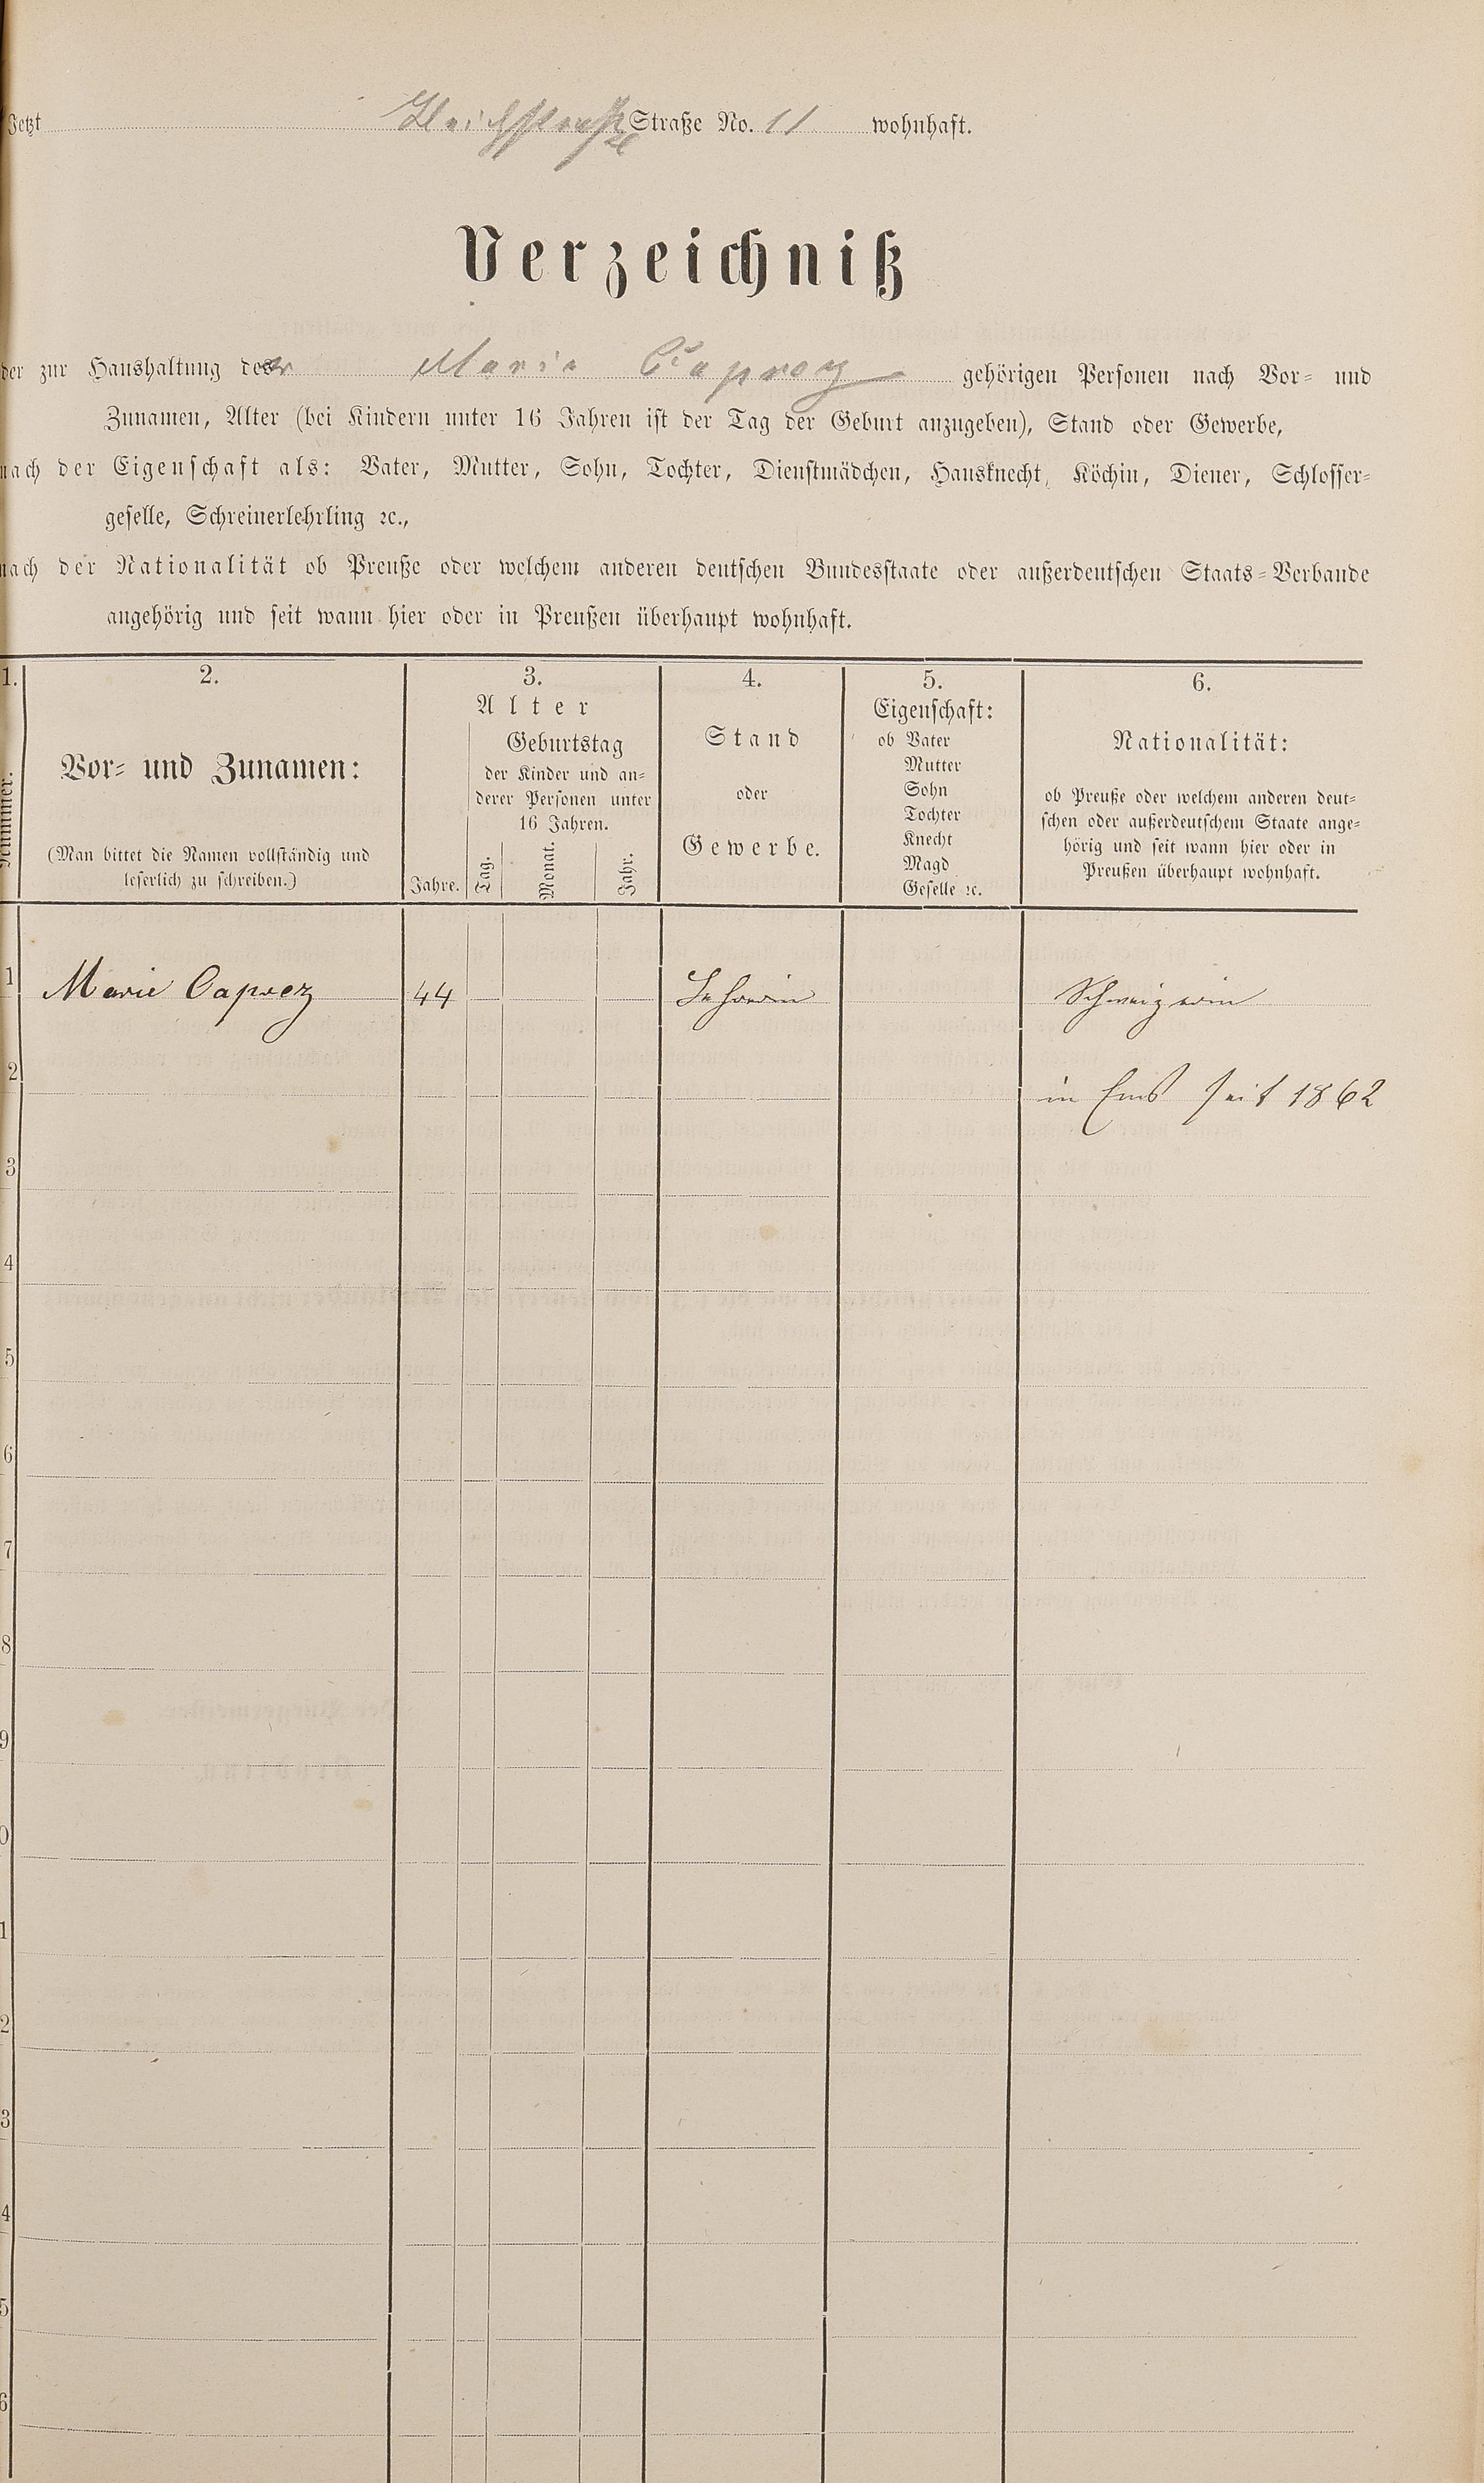 Jetzt Bleichstraße Straße No. 11 wohnhaft.
Verzeichniß
der zur Haushaltung der Marie Caprez gehörigen Personen nach Vor- und
Zunamen, Alter (bei Kindern unter 16 Jahren ist der Tag der Geburt anzugeben), Stand oder Gewerbe,
nach der Eigenschaft als: Vater, Mutter, Sohn, Tochter, Dienstmädchen, Hausknecht, Köchin, Diener, Schlosser-
geselle, Schreinerlehrling ꝛc.,
nach der Nationalität ob Preuße oder welchem anderen deutschen Bundesstaate oder außerdeutschen Staats-Verbande
angehörig und seit wann hier oder in Preußen überhaupt wohnhaft.
1.
2.
Vor- und Zunamen:
(Man bittet die Namen vollständig und
leserlich zu schreiben.)
3.
Alter
Jahre.
Geburtstag
der Kinder und an-
derer Personen unter
16 Jahren.
Tag.
Monat.
Jahr.
4.
Stand
oder
Gewerbe.
5.
Eigenschaft:
ob Vater
Mutter
Sohn
Tochter
Knecht
Magd
Geselle ꝛc.
6.
Nationalität:
ob Preuße oder welchem anderen deut-
schen oder außerdeutschem Staate ange-
hörig und seit wann hier oder in
Preußen überhaupt wohnhaft.
1 Marie Caprez 44 Lehrerin Schweizerin
2 in Ems seit 1862
3
4
5
6
7
8
9
0
1
2
3
4
5
6